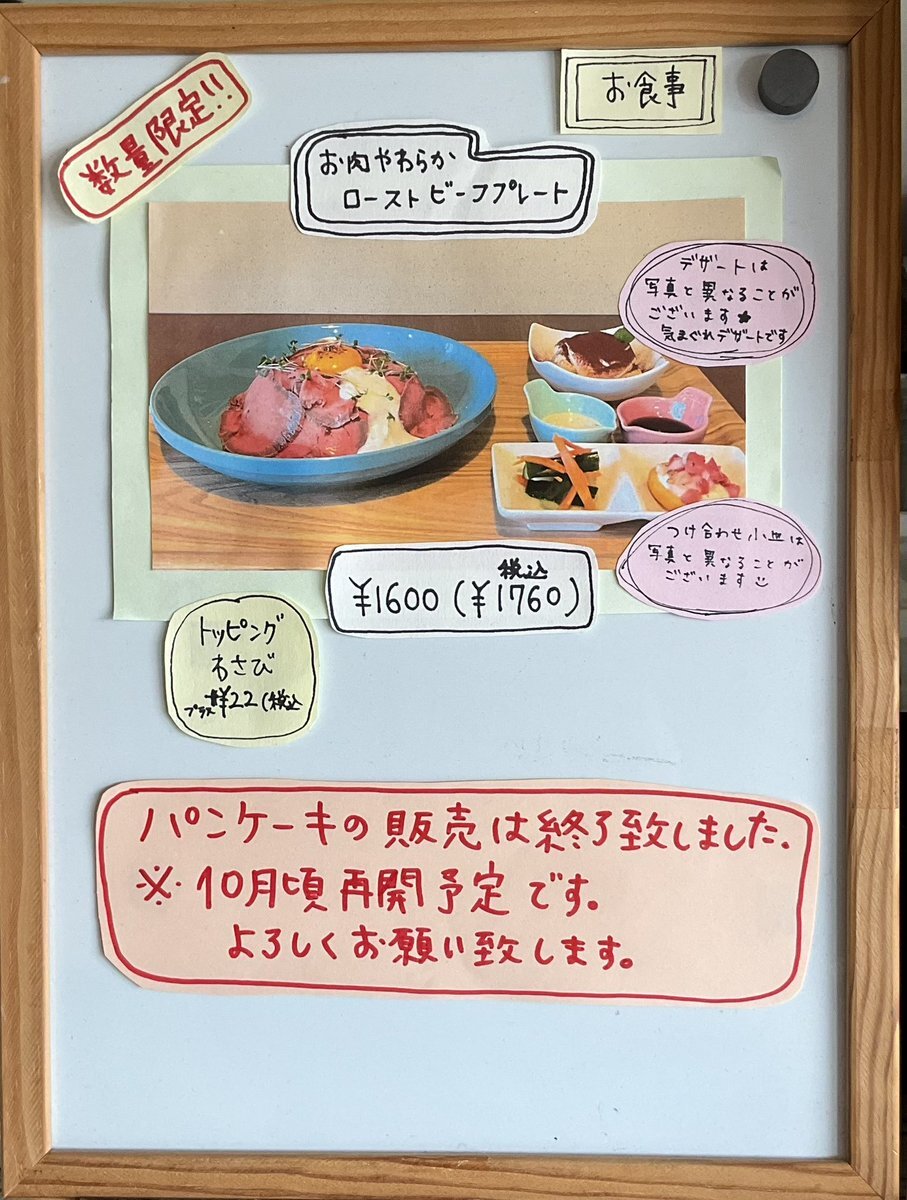 数量限定!!
お食事
お肉やわらか
ローストビーフプレート
デザートは
写真と異なることが
ございます★
気まぐれデザートです
つけ合わせ小皿は
写真と異なることが
ございます☺
税込
¥1600(¥1760)
トッピング
わさび
プラス¥22(税込
パンケーキの販売は終了致しました.
※10月頃再開予定です。
よろしくお願い致します。